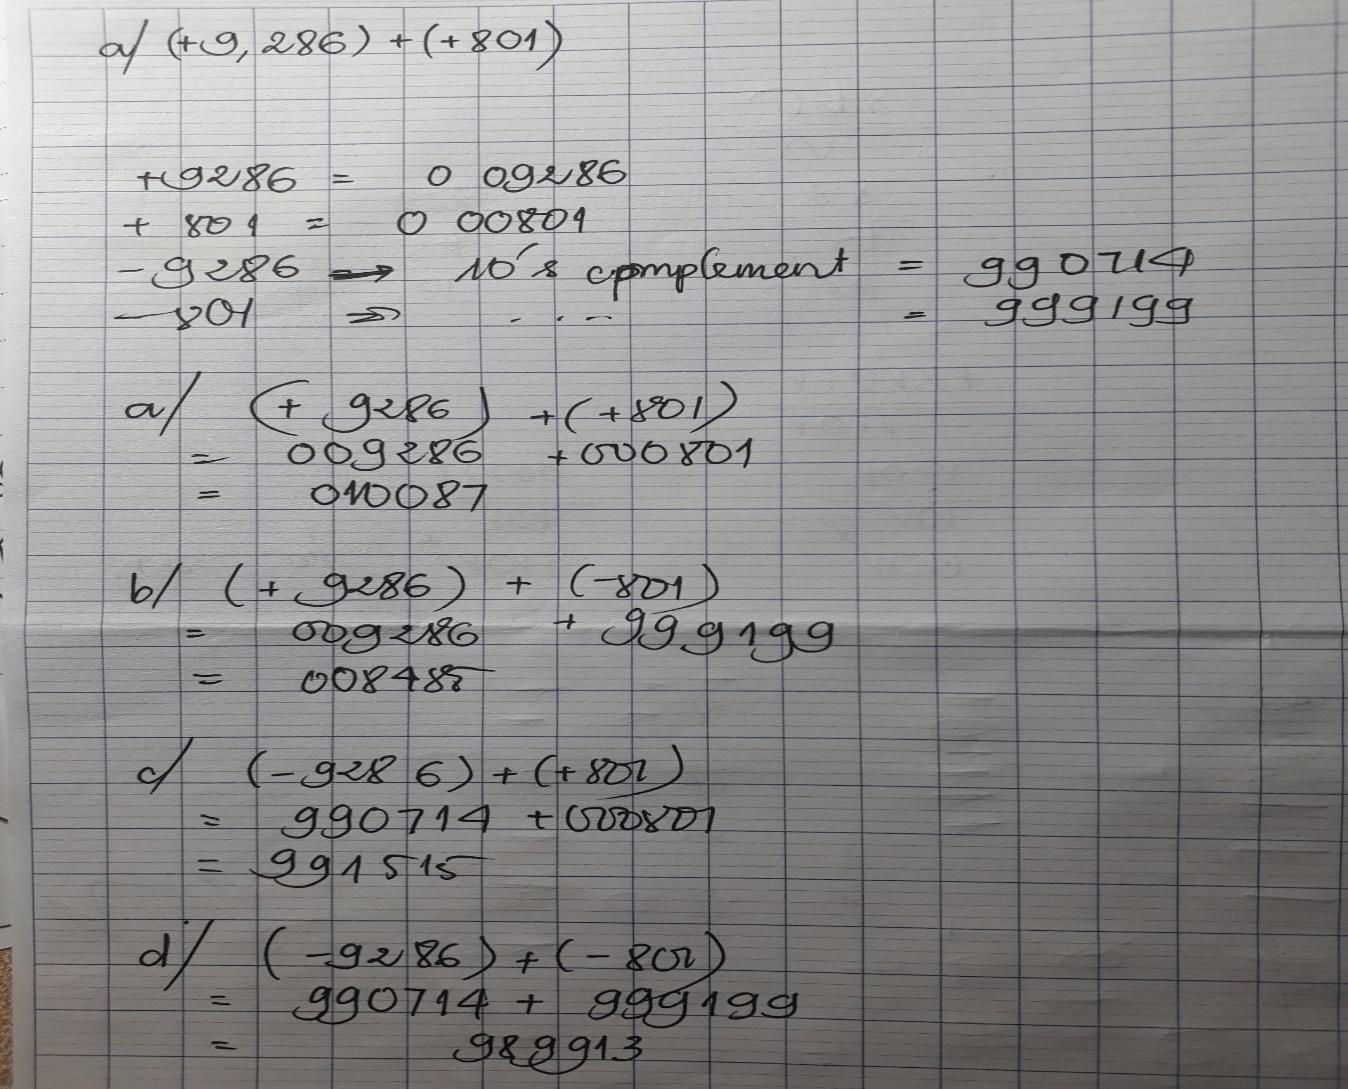 a/ (+9,286) + (+801)
+9286 = 0 09286
+ 801 = 0 00801
-9286 → 10's complement = 990714
-801 ⇒ . . . . = 999199
a/ (+ 9286) + (+801)
= 009286 + 000801
= 010087
b/ (+ 9286) + (-801)
= 009286 + 999199
= 008485
c/ (-9286) + (+801)
= 990714 + 000801
= 991515
d/ (-9286) + (-801)
= 990714 + 999199
= 989913